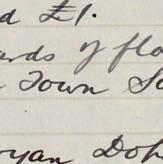 d £1.
ards of flo
Town Sc
yan Dop